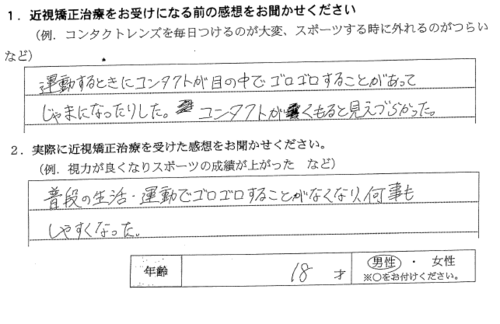 1．近視矯正治療をお受けになる前の感想をお聞かせください
（例．コンタクトレンズを毎日つけるのが大変、スポーツする時に外れるのがつらい
など）
運動するときにコンタクトが目の中でゴロゴロすることがあって
じゃまになったりした。コンタクトがくもると見えづらかった。
2．実際に近視矯正治療を受けた感想をお聞かせください。
（例．視力が良くなりスポーツの成績が上がった など）
普段の生活・運動でゴロゴロすることがなくなり、何事も
しやすくなった。
年齢 18 才 男性 ・ 女性
※○をお付けください。